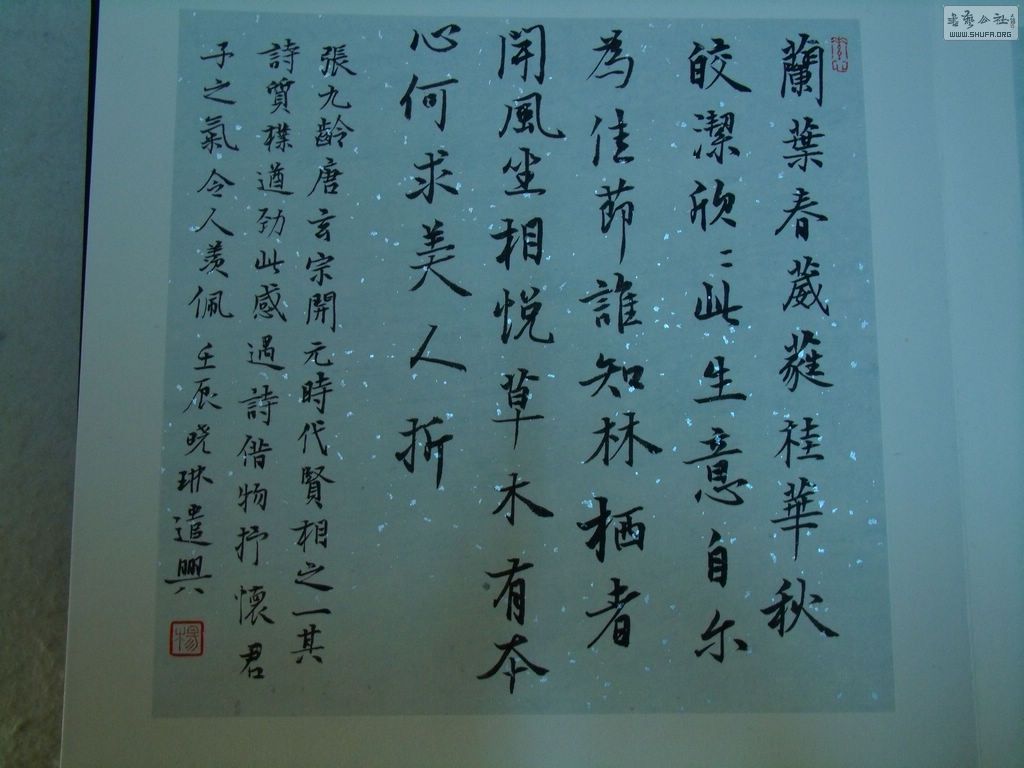 蘭葉春葳蕤桂華秋
皎潔欣〻此生意自尔
為佳節誰知林栖者
聞風坐相悅草木有本
心何求美人折
張九齡唐玄宗開元時代賢相之一其
詩質樸遒劲此感遇詩借物抒懷君
子之氣令人羡佩壬辰晓琳遣興
楊
書藝公社
WWW.SHUFA.ORG